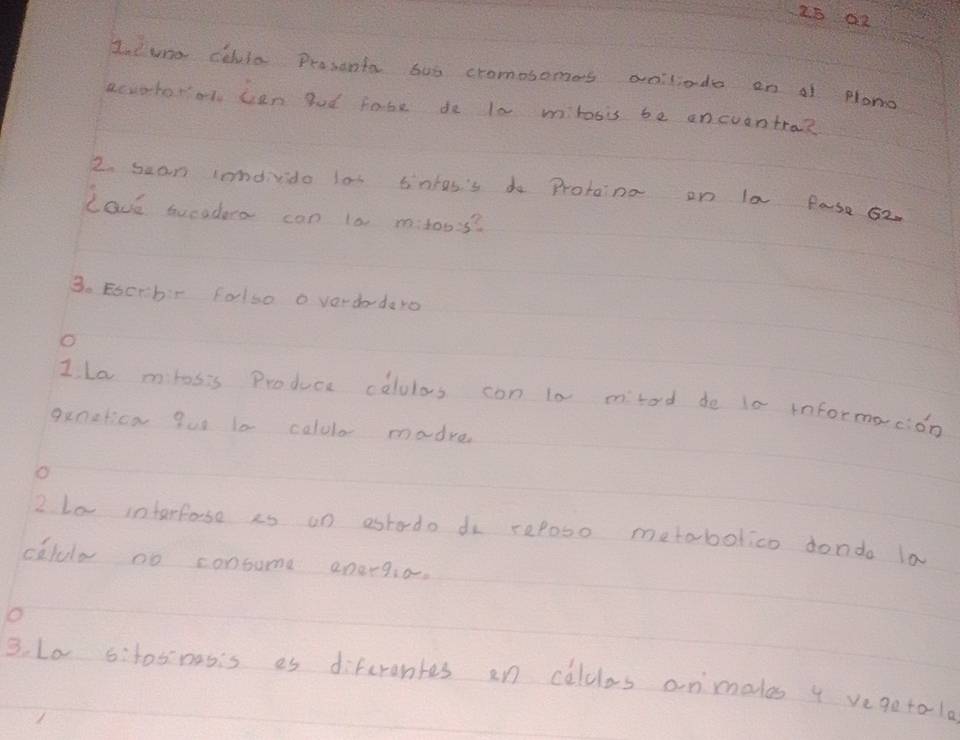 25 02
1. ¿una célula Presenta sus cromosomas aniliado en el Plano
ecuatorial. ¿en qué fase de la mitosis se encuentra?
2. sean inhdivido las sintesis de Proteina en la fase G2.
¿Qué sucedera con la mitosis?
3. Escribir Falso o verdadero
1. La mitosis Produce células con la mitad de la información
genetica que la celula madre.
2. La interfase es un estado de reposo metabolico donde la
célula no consume energia.
3. La sitosinesis es diferentes en células animales y vegetales